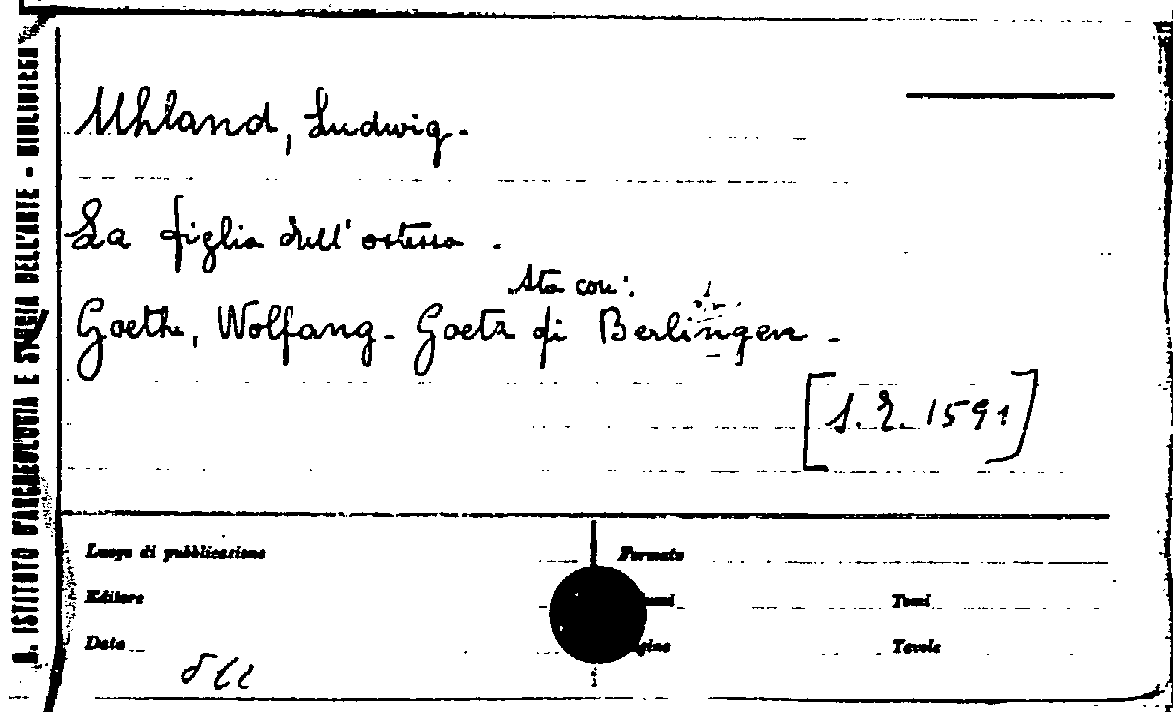 R. ISTITUTO D'ARCHEOLOGIA E STORIA DELL'ARTE - BIBLIOTECA
Uhland, Ludwig.
La figlia dell'ostessa.
Sta con:
Goethe, Wolfang. Goetz di Berlingen.
[S.R. 1591]
Luogo di pubblicazione
Formato
Editore
Tomi
Data
Tavole